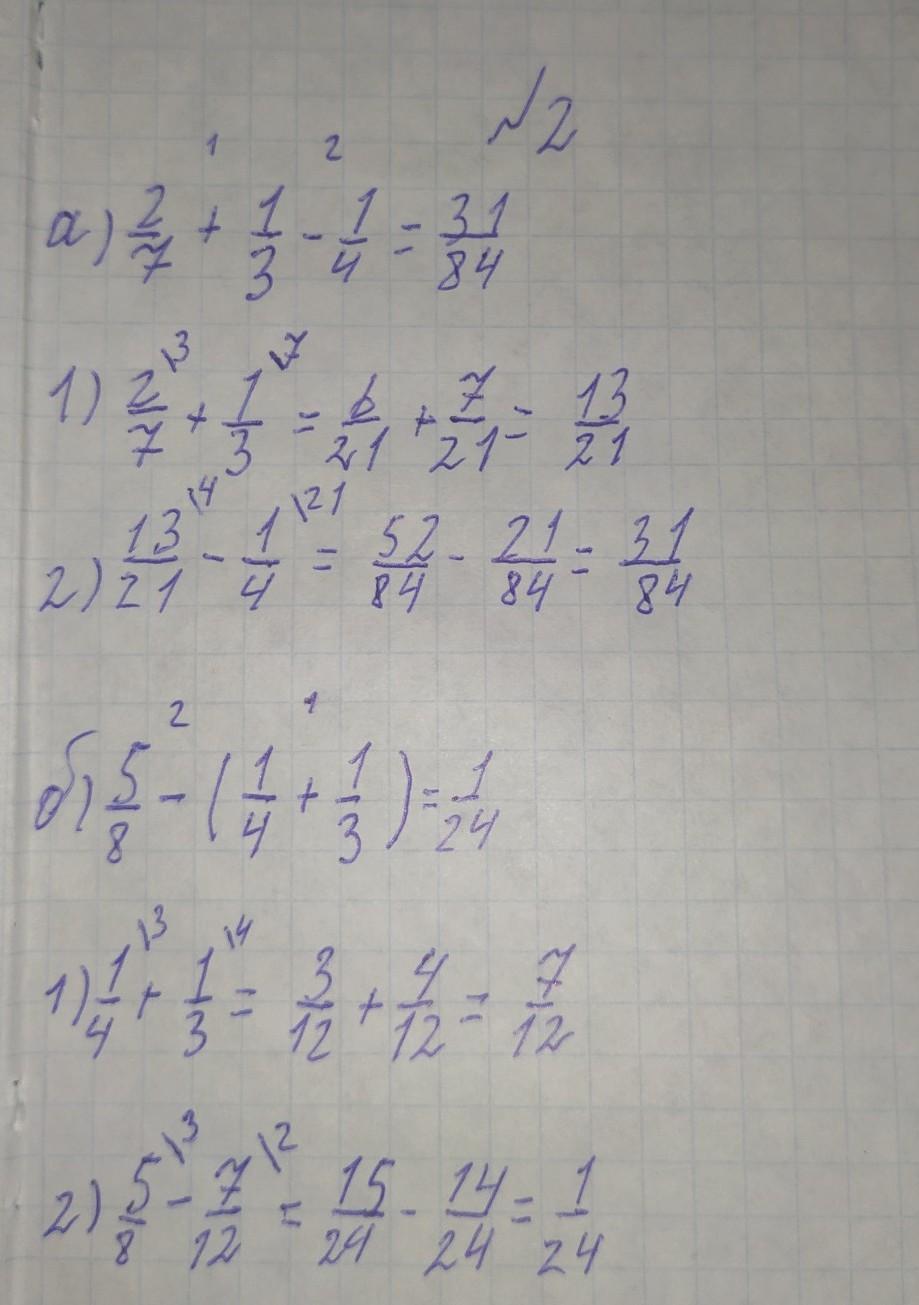 №2
1 2
а) 2/7 + 1/3 - 1/4 = 31/84
1) 2/7\3 + 1/3\7 = 6/21 + 7/21 = 13/21
2) 13/21\4 - 1/4\21 = 52/84 - 21/84 = 31/84
2 1
б) 5/8 - (1/4 + 1/3) = 1/24
1) 1/4\3 + 1/3\4 = 3/12 + 4/12 = 7/12
2) 5/8\3 - 7/12\2 = 15/24 - 14/24 = 1/24